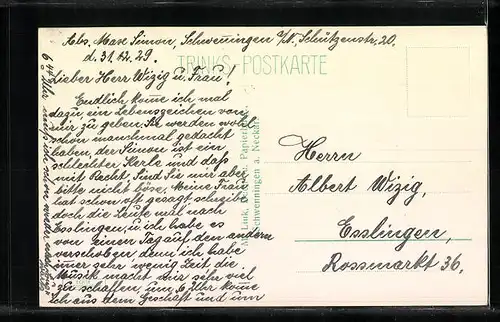 Abs. Max Simon, Schwenningen a/N. Schützenstr. 20.
d. 31.12.29.
TRINKS-POSTKARTE
Lieber Herr Wizig u. Frau!
Endlich kome ich mal
dazu, ein Lebenszeichen von
mir zu geben. Sie werden wohl
schon manchmal gedacht
haben, der Simon ist ein
schlechter Kerl, und daß
mit Recht. Sind Sie mir aber
bitte nicht böse. Meine Frau
hat schon oft gesagt schreibe
doch die Leute mal nach
Esslingen, u. ich habe es
von einen Tag auf den andern
verschoben, denn ich habe
imer sehr wenig Zeit die
Musik macht mir sehr viel
zu schaffen, um 6 Uhr kome
ich aus dem Geschäft und um
6 Uhr muß ich schon wieder
M. Link, Papierhdlg.
Schwenningen a. Neckar
Herrn
Albert Wizig,
Esslingen,
Rossmarkt 36.